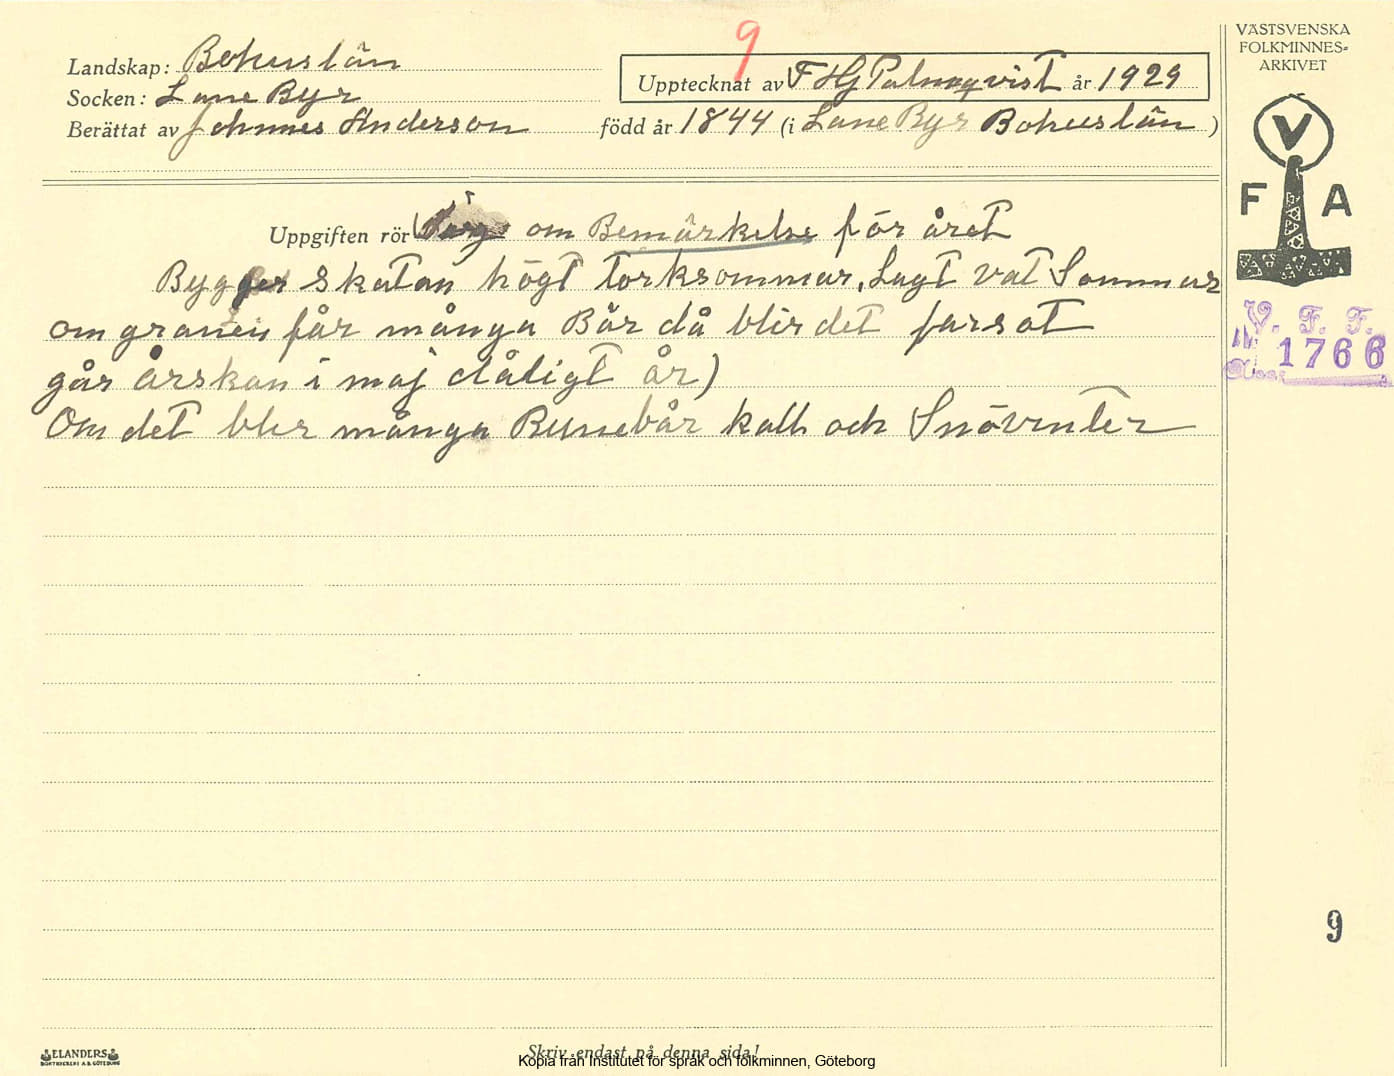 9
VÄSTSVENSKA
FOLKMINNES=
ARKIVET
Landskap: Bohuslän
Upptecknat av F Hj Palmqvist år 1929
Socken: Lane Byr
Berättat av Johnnes Anderson född år 1844 (i Lane Byr Bohuslän )
V
F A
Uppgiften rör om Bemärkelse för året
Bygger Skatan högt torksommar, Lagt vat Sommar
om granen får många Bär då blir det farsot
går årskan i maj dåligt år)
Om det blir många Runebär kall och Snövinter
V. F. F.
1766
9
ELANDERS
BOKTRYCKERI A.B. GÖTEBORG
Skriv endast på denna sida!
Kopia från Institutet för språk och folkminnen, Göteborg